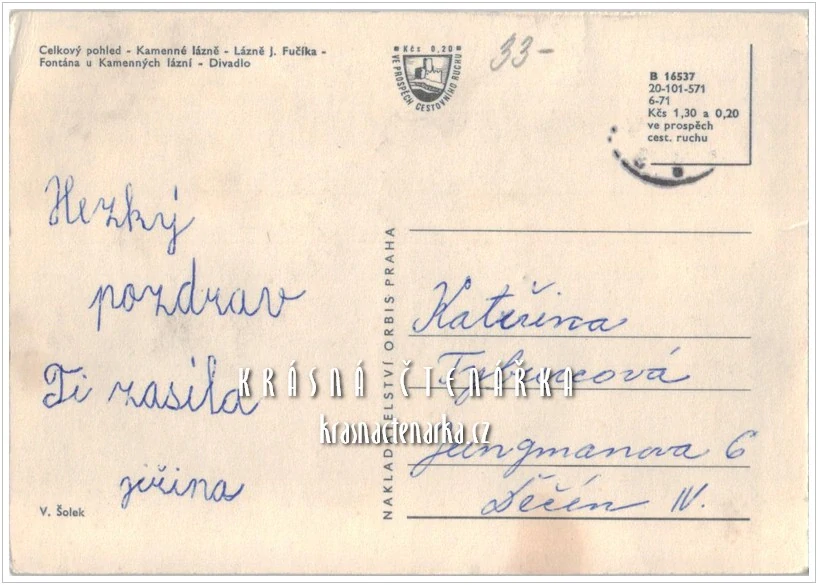 Celkový pohled - Kamenné lázně - Lázně J. Fučíka -
Fontána u Kamenných lázní - Divadlo
Kčs 0,20
VE PROSPĚCH CESTOVNÍHO RUCHU
33-
B 16537
20-101-571
6-71
Kčs 1,30 a 0,20
ve prospěch
cest. ruchu
Hezký
pozdrav
Ti zasílá
jiřina
V. Šolek
NAKLADATELSTVÍ ORBIS PRAHA
Kateřina
Jungmanova 6
Děčín IV.
KRÁSNÁ ČTENÁŘKA
krasnactenarka.cz